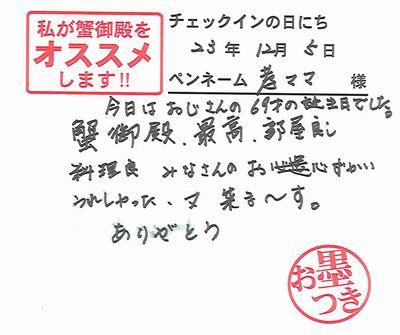 私が蟹御殿を
オススメ
します!!
チェックインの日にち
23年12月5日
ペンネーム 老ママ 様
今日はおじさんの69才の誕生日でした。
蟹御殿、最高、部屋良し
料理良 みなさんのお心ずかい
うれしかった、又来ま〜す。
ありがとう
お墨つき